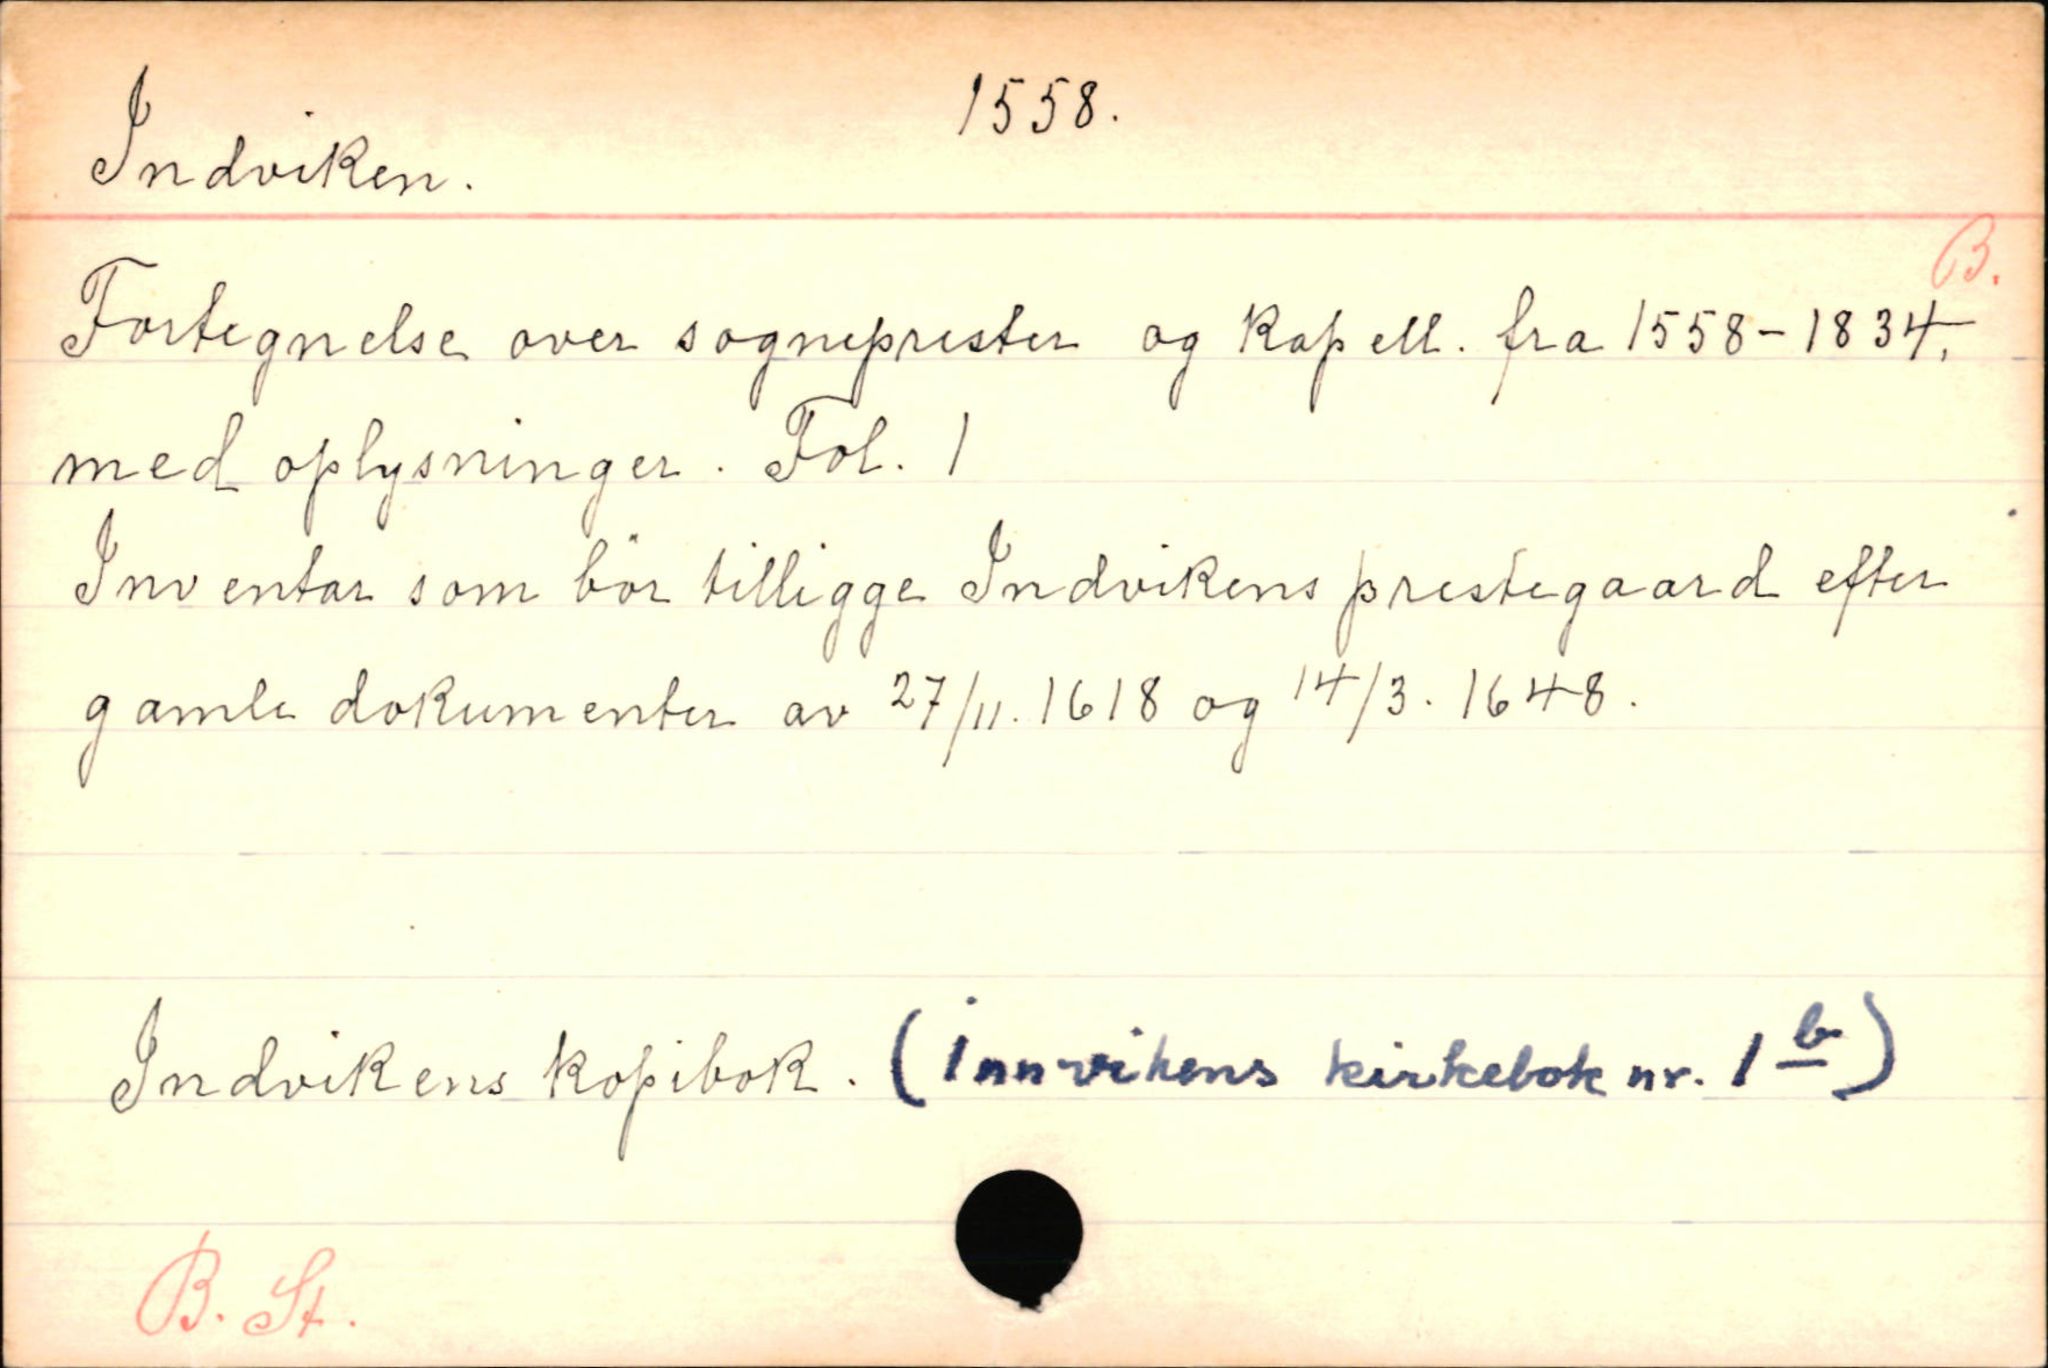 Indviken.
1558.
B.
Fortegnelse over sogneprester og kapell. fra 1558-1834,
med oplysninger. Fol. 1
Inventar som bör tilligge Indvikens prestegaard efter
gamle dokumenter av 27/11. 1618 og 14/3. 1648.
Indvikens kopibok. (Innvikens kirkebok nr. 1 b)
B. St.